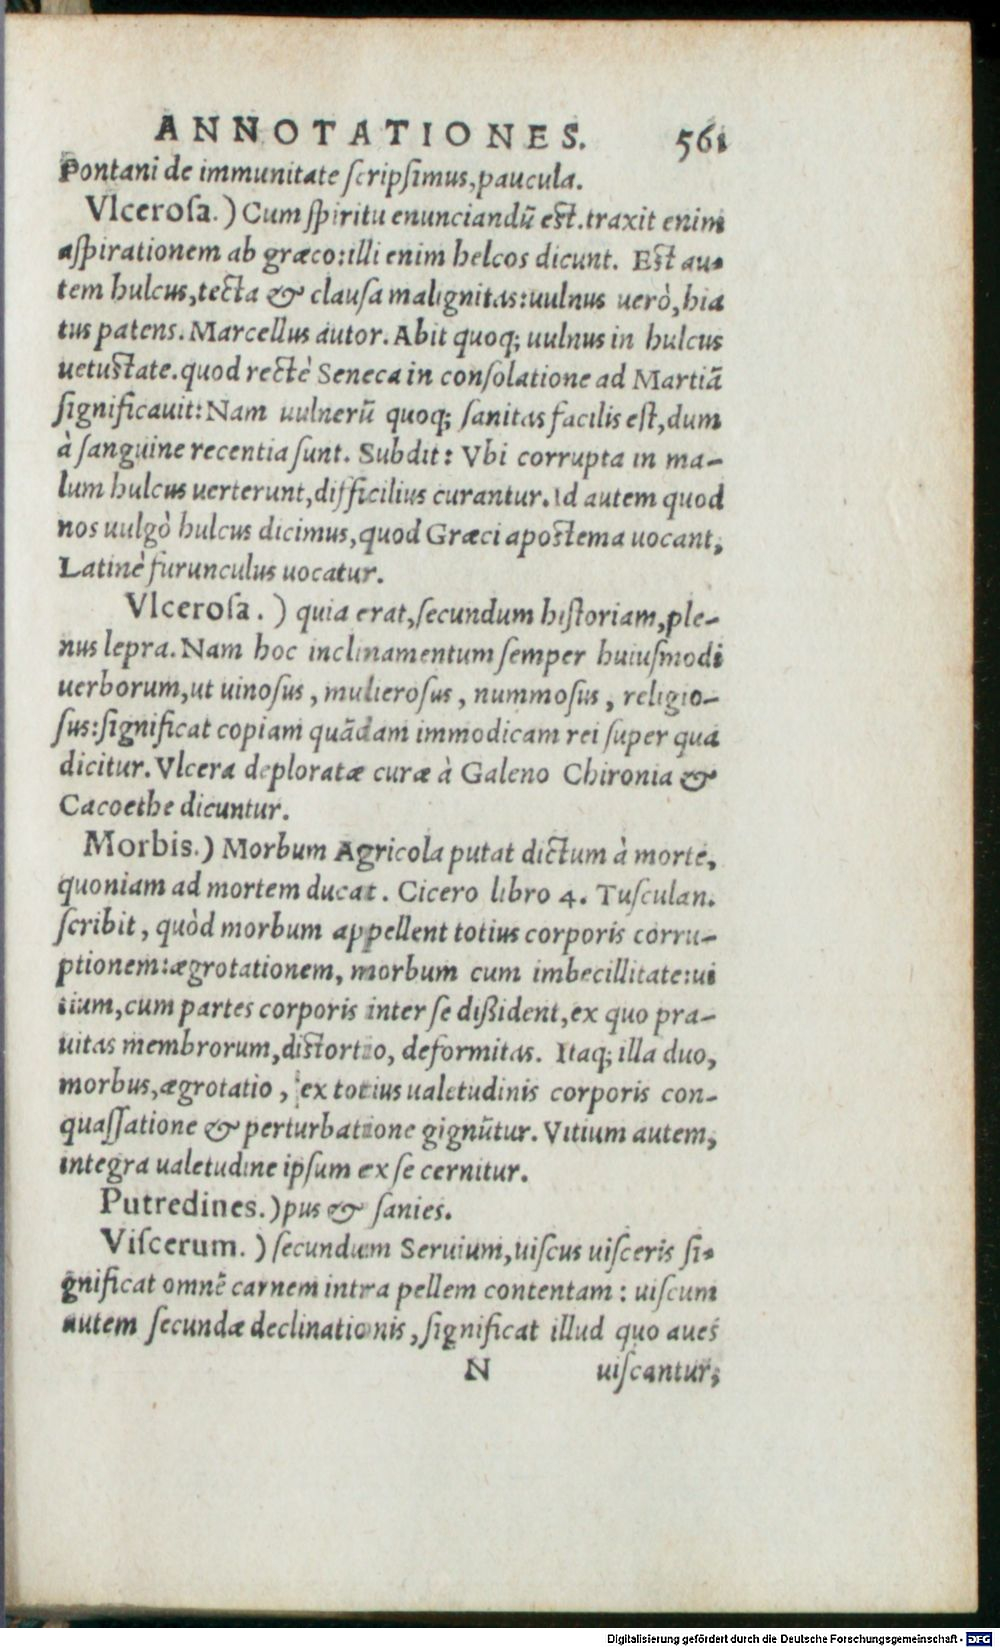 ANNOTATIONES. 561
Pontani de immunitate ſcripſimus, paucula.
Vlceroſa.) Cum ſpiritu enunciandũ est. traxit enim
aſpirationem ab græco: illi enim helcos dicunt. Est au-
tem hulcus, tecta & clauſa malignitas: uulnus uerò, hia
tus patens. Marcellus autor. Abit quoq; uulnus in hulcus
uetustate. quod rectè Seneca in conſolatione ad Martiã
ſignificauit: Nam uulnerũ quoq; ſanitas facilis eſt, dum
à ſanguine recentia ſunt. Subdit: Vbi corrupta in ma-
lum hulcus uerterunt, difficilius curantur. Id autem quod
nos uulgò hulcus dicimus, quod Græci apostema uocant,
Latinè furunculus uocatur.
Vlceroſa.) quia erat, ſecundum hiſtoriam, ple-
nus lepra. Nam hoc inclinamentum ſemper huiuſmodi
uerborum, ut uinoſus, mulieroſus, nummoſus, religio-
ſus: ſignificat copiam quãdam immodicam rei ſuper qua
dicitur. Vlcera deploratæ curæ à Galeno Chironia &
Cacoethe dicuntur.
Morbis.) Morbum Agricola putat dictum à morte,
quoniam ad mortem ducat. Cicero libro 4. Tuſculan.
ſcribit, quòd morbum appellent totius corporis corru-
ptionem: ægrotationem, morbum cum imbecillitate: ui
tium, cum partes corporis inter ſe dißident, ex quo pra-
uitas membrorum, distortio, deformitas. Itaq; illa duo,
morbus, ægrotatio, ex totius ualetudinis corporis con-
quaſſatione & perturbatione gignũtur. Vitium autem,
integra ualetudine ipſum ex ſe cernitur.
Putredines.) pus & ſanies.
Viſcerum.) ſecundum Seruium, uiſcus uiſceris ſi-
gnificat omnẽ carnem intra pellem contentam: uiſcum
autem ſecundæ declinationis, ſignificat illud quo aues
N uiſcantur,
Digitalisierung gefördert durch die Deutsche Forschungsgemeinschaft - DFG